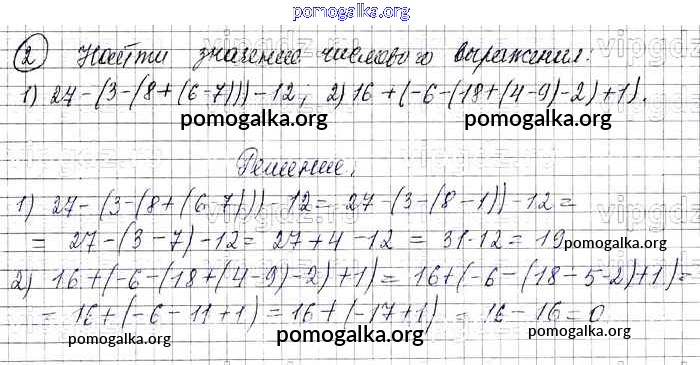 pomogalka.org
② Найти значение числового выражения:
1) 27-(3-(8+(6-7)))-12; 2) 16+(-6-(18+(4-9)-2)+1).
pomogalka.org pomogalka.org
Решение.
1) 27-(3-(8+(6-7)))-12= 27-(3-(8-1))-12=
= 27-(3-7)-12= 27+4-12= 31-12= 19
pomogalka.org
2) 16+(-6-(18+(4-9)-2)+1)= 16+(-6-(18-5-2)+1)=
= 16+(-6-11+1)= 16+(-17+1) = 16-16=0
pomogalka.org pomogalka.org pomogalka.org